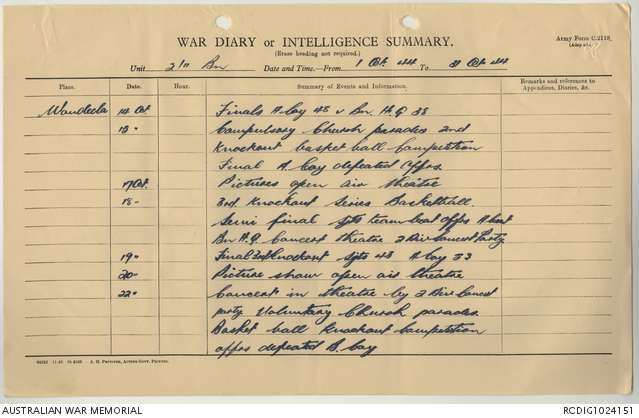 Army Form C.2118.
WAR DIARY or INTELLIGENCE SUMMARY.
(Erase heading not required.)
Unit 2/11 Bn Date and Time.—From 1 Oct 44 To 31 Oct 44
Place. Date. Hour. Summary of Events and Information. Remarks and references to Appendices, Diaries, &c.
Wondecla 14 Oct. Finals A Coy 45 v Bn. H.Q 38
15 " Compulsory Church parades 2nd
Knockout basket ball Competition
Final A Coy defeated Offrs.
17 Oct. Pictures open air theatre
18 - 3rd Knockout Series Basketball.
Semi final Sgts team beat offrs A beat
Bn H.Q Concert theatre 2 Div Concert Party
19 " Final 3rd Knockout Sgts 43 A Coy 33
20 - Picture show open air theatre
22 " Concert in theatre by 2 Div Concert
party Voluntary Church parades.
Basket ball Knockout Competition
offrs defeated B. Coy
A. H. Pettifer, Acting Govt. Printer.
AUSTRALIAN WAR MEMORIAL
RCDIG1024151